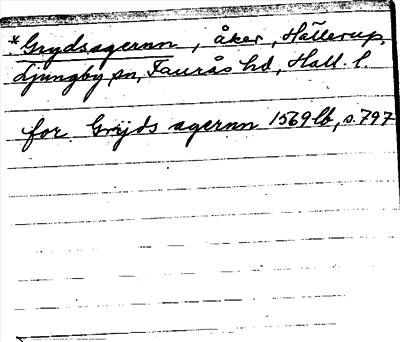 *Grydsagernn, åker, Hällerup,
Ljungby sn, Faurås hd, Hall. l.
for Grÿds agernn 1569 lb, s. 797